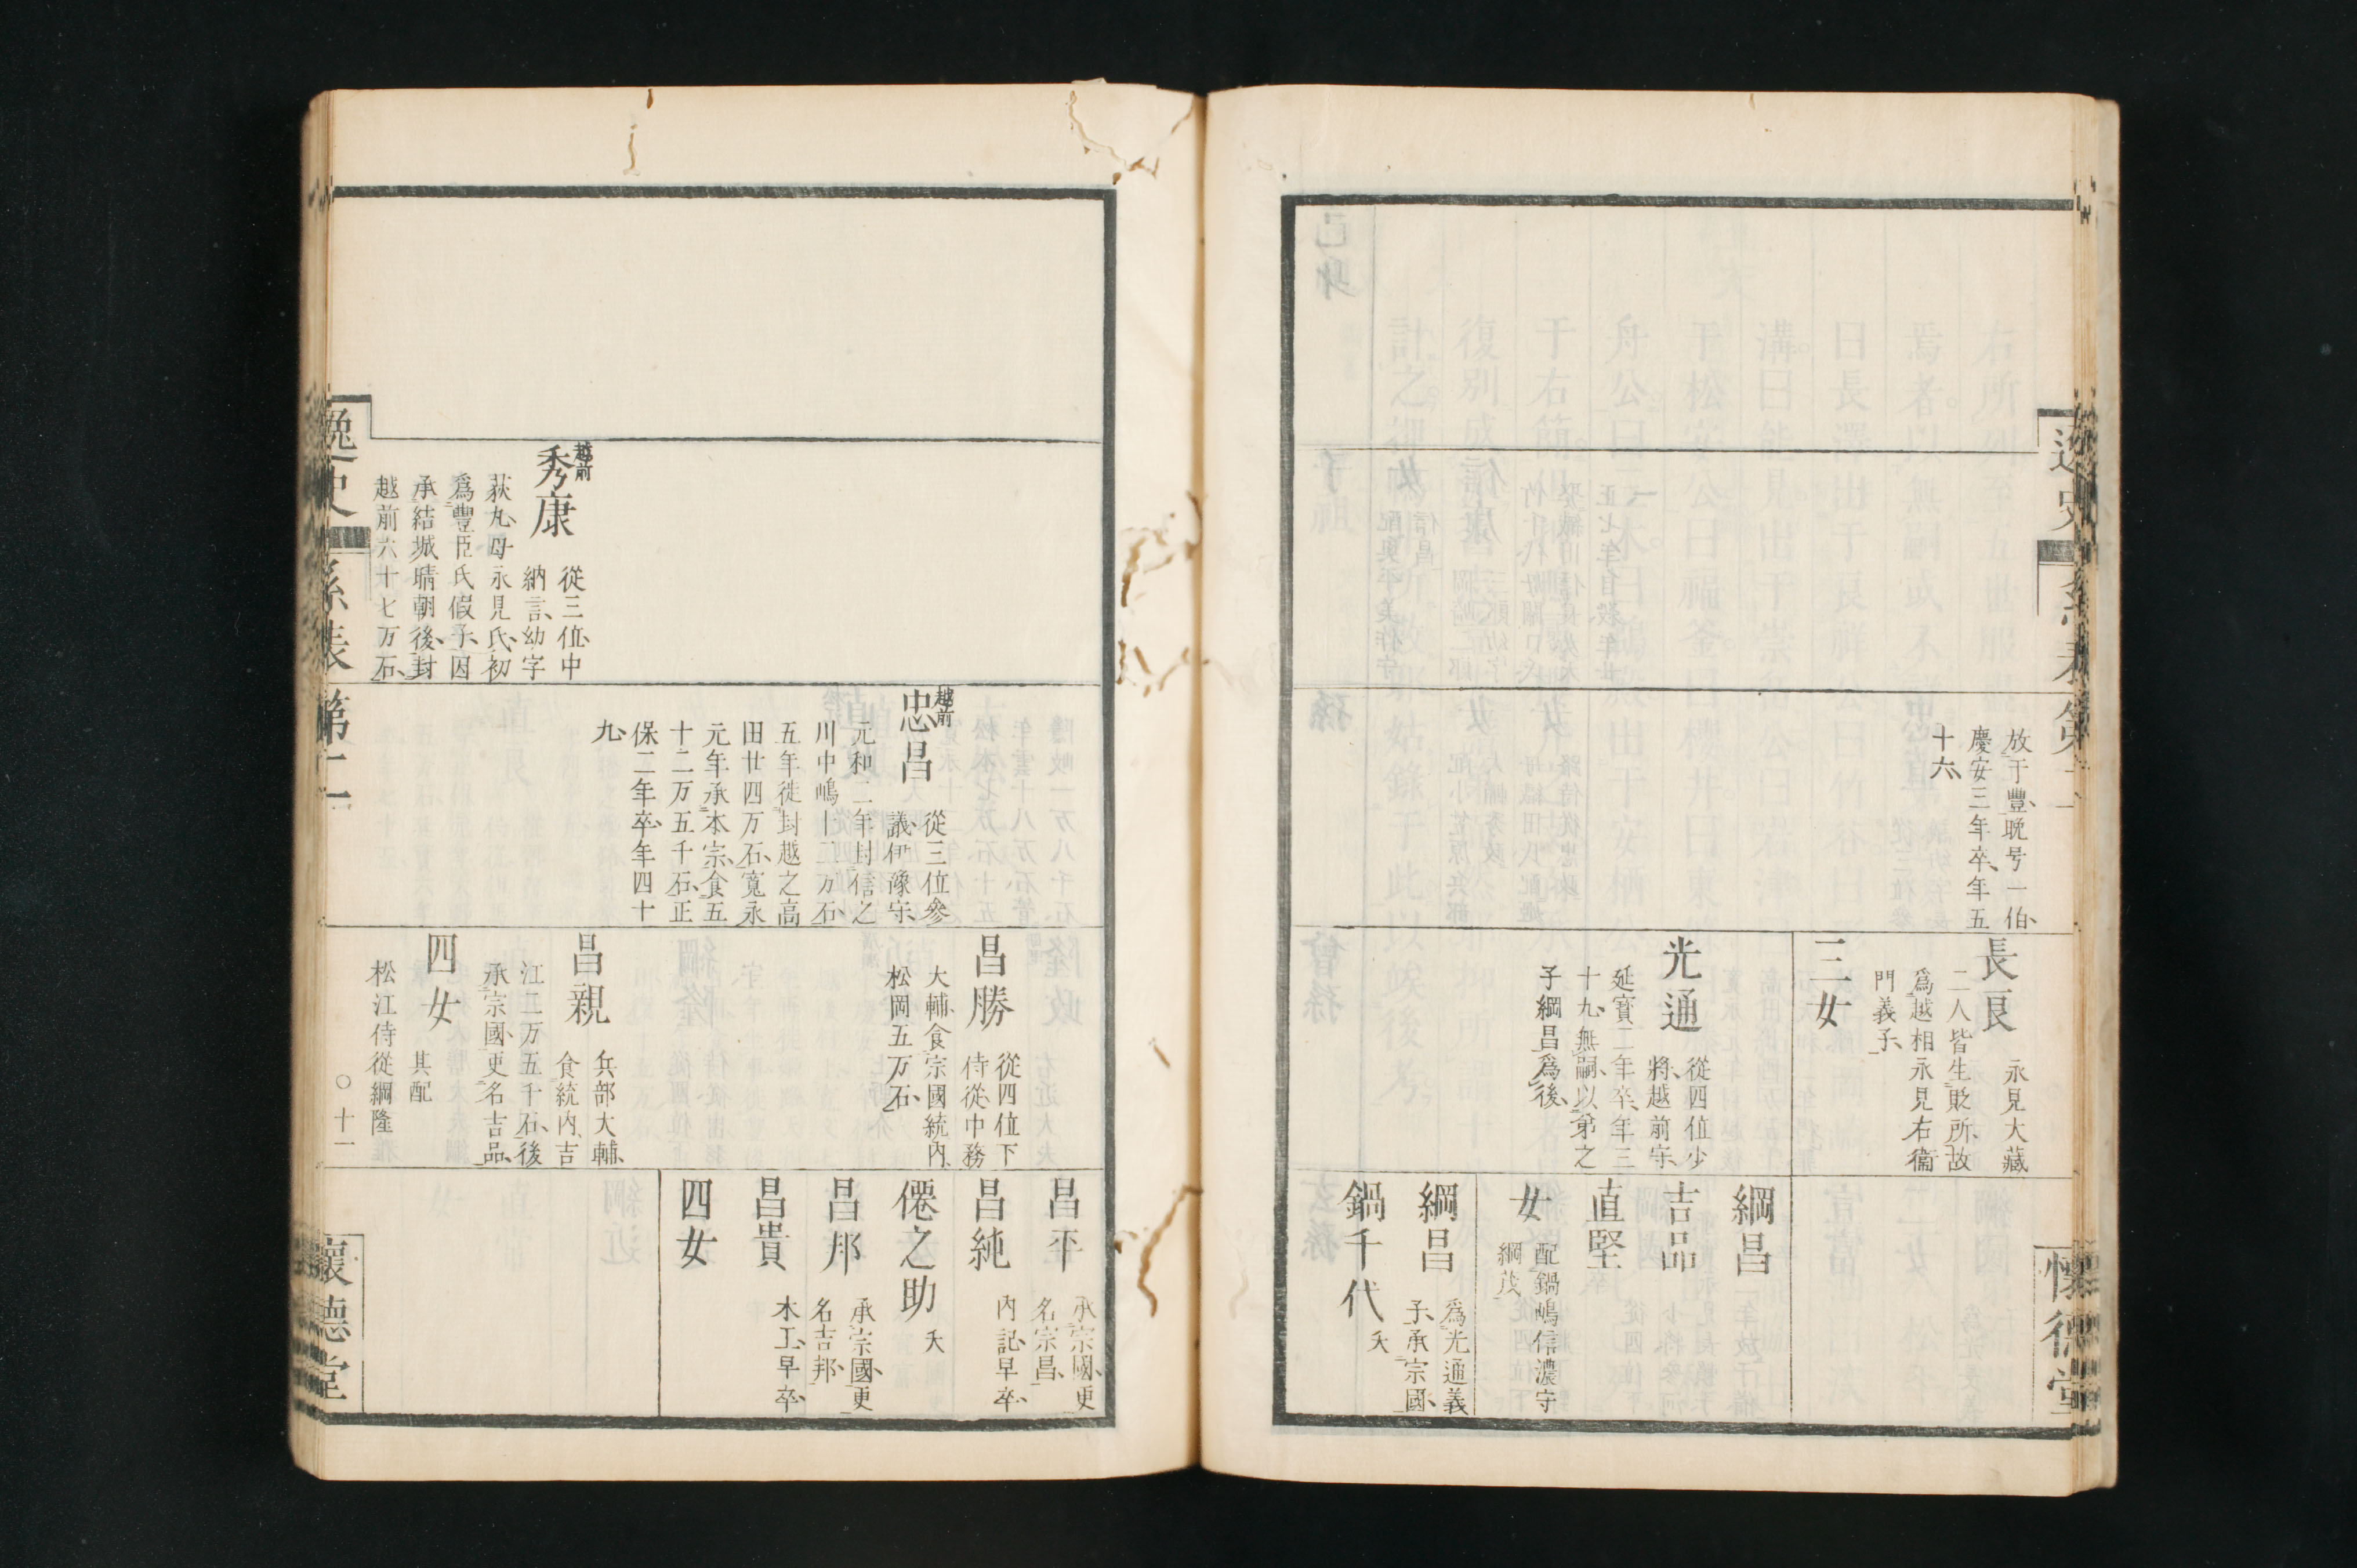 逸史
系表第十一
懷德堂
放于豐、晚号一伯、
慶安三年卒、年五
十六、
長良
永見大藏
二人皆生貶所、故
爲越相永見右衞
門義子、
三女
光通
從四位少
將、越前守、
延寶二年卒、年三
十九、無嗣、以弟之
子綱昌爲後、
綱昌
吉品
直堅
女
配鍋嶋信濃守
綱茂
綱昌
爲光通義
子、承宗國、
鍋千代
夭
越前
秀康
從三位、中
納言、幼字
荻丸、母永見氏、初
爲豐臣氏假子、因
承結城晴朝後、封
越前六十七万石、
越前
忠昌
從三位參
議、伊豫守、
元和二年封信之
川中嶋十二万石、
五年徙封越之高
田廿四万石、寬永
元年承本宗、食五
十二万五千石、正
保二年卒、年四十
九、
昌勝
從四位下
侍從、中務
大輔、食宗國統內、
松岡五万石、
昌親
兵部大輔、
食統內、吉
江二万五千石、後
承宗國、更名吉品、
四女
其配
松江侍從綱隆
昌平
承宗國、更
名宗昌、
昌純
內記、早卒、
僊之助
夭
昌邦
承宗國、更
名吉邦、
昌貴
木工、早卒、
四女
逸史
系表第十一
○十一
懷德堂